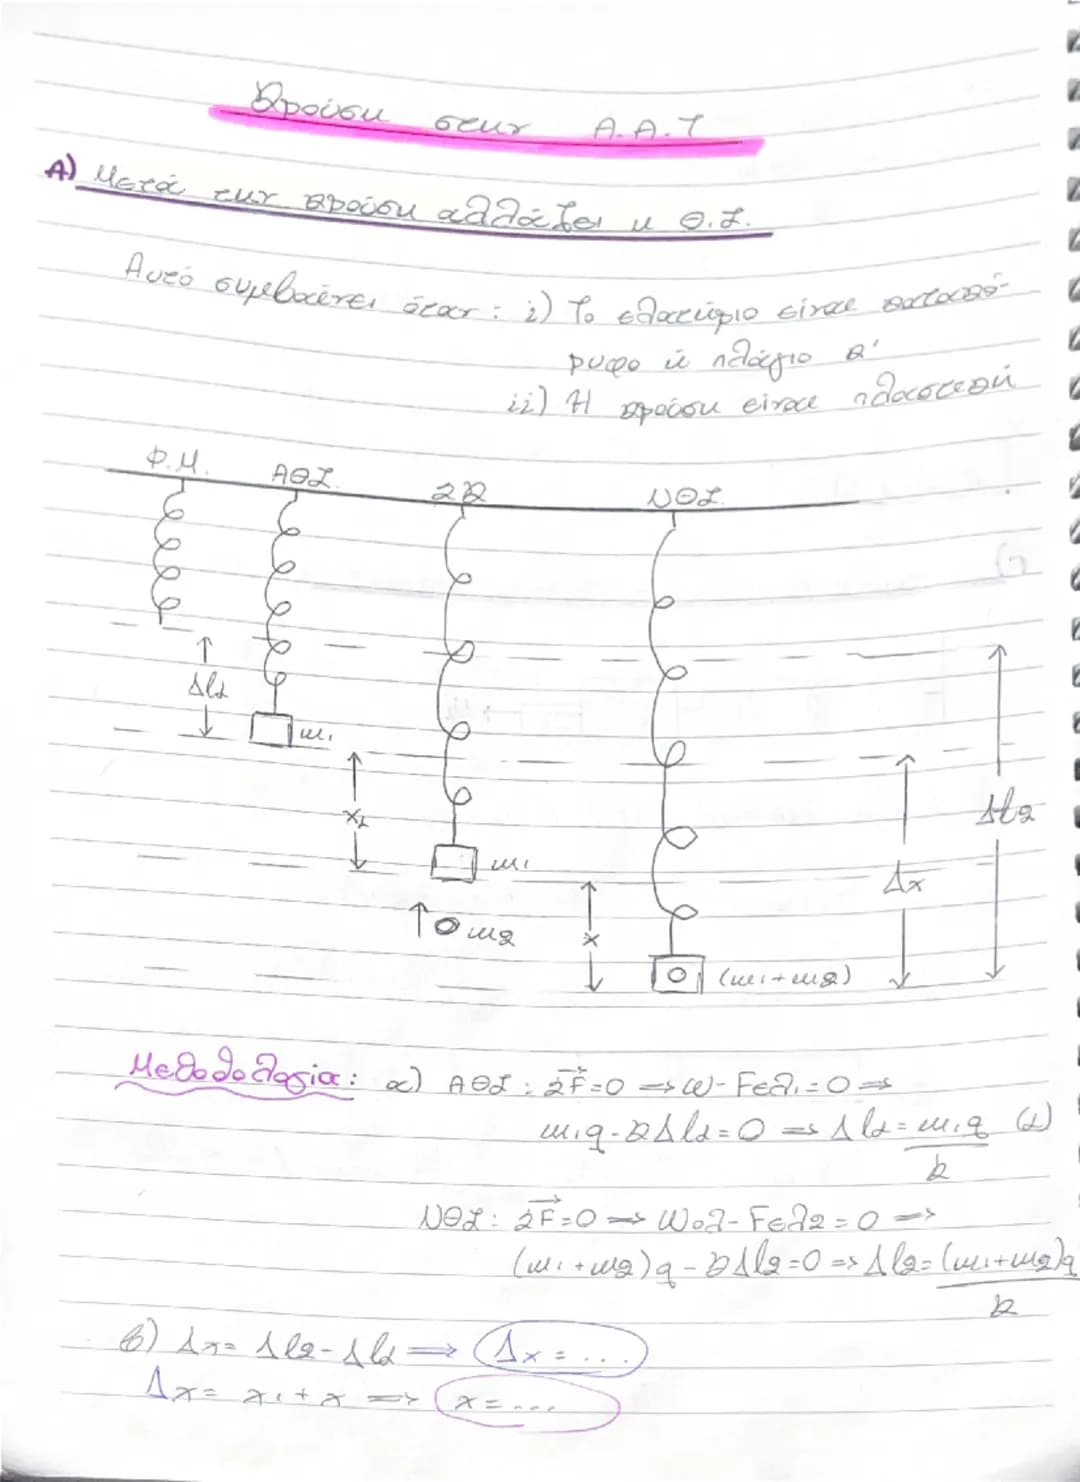 Κρούση στην Α.Α.Τ
Α) Μετά την κρούση αλλάζει η Θ.Ι.
Αυτό συμβαίνει όταν: i) Το ελατήριο είναι κατακό-
ρυφο ή πλάγιο κ'
ii) Η κρούση είναι πλαστική
Φ.Μ. ΑΘΙ ΣΚ ΝΘΙ
Δl1
m1
x1
Δl2
m1
Δx
m2
x
(m1+m2)
Μεθοδολογία: α) ΑΘΙ: ΣF=0 => w-Fελ1=0 =>
m1g-kΔl1=0 => Δl1=m1g/k (1)
ΝΘΙ: ΣF=0 => Wολ-Fελ2=0 =>
(m1+m2)g-kΔl2=0 => Δl2=(m1+m2)g/k
β) Δx=Δl2-Δl1 => Δx=...
Δx=x1+x => x=...